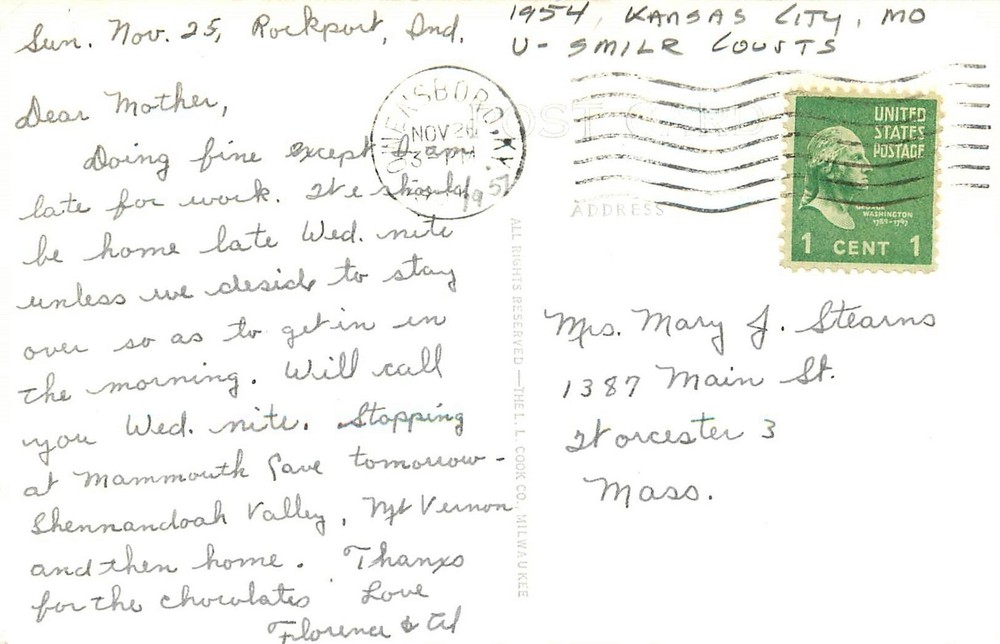 1954, KANSAS CITY, MO
U-SMILR COURTS
Sun. Nov. 25, Rockport, Ind.
Dear Mother,
Doing fine except I am
late for work. We should
be home late Wed. nite
unless we deside to stay
over so as to get in in
the morning. Will call
you Wed. nite. Stopping
at Mammouth Cave tomorrow -
Shennandoah Valley, Mt Vernon
and then home. Thanxs
for the chocolates Love
Florence &
OWENSBORO, KY.
NOV 26
3 PM
POST CARD
ADDRESS
UNITED
STATES
POSTAGE
GEORGE
WASHINGTON
1789-1797
1 CENT 1
ALL RIGHTS RESERVED — THE L. L. COOK CO., MILWAUKEE
Mrs. Mary J. Stearns
1387 Main St.
Worcester 3
Mass.